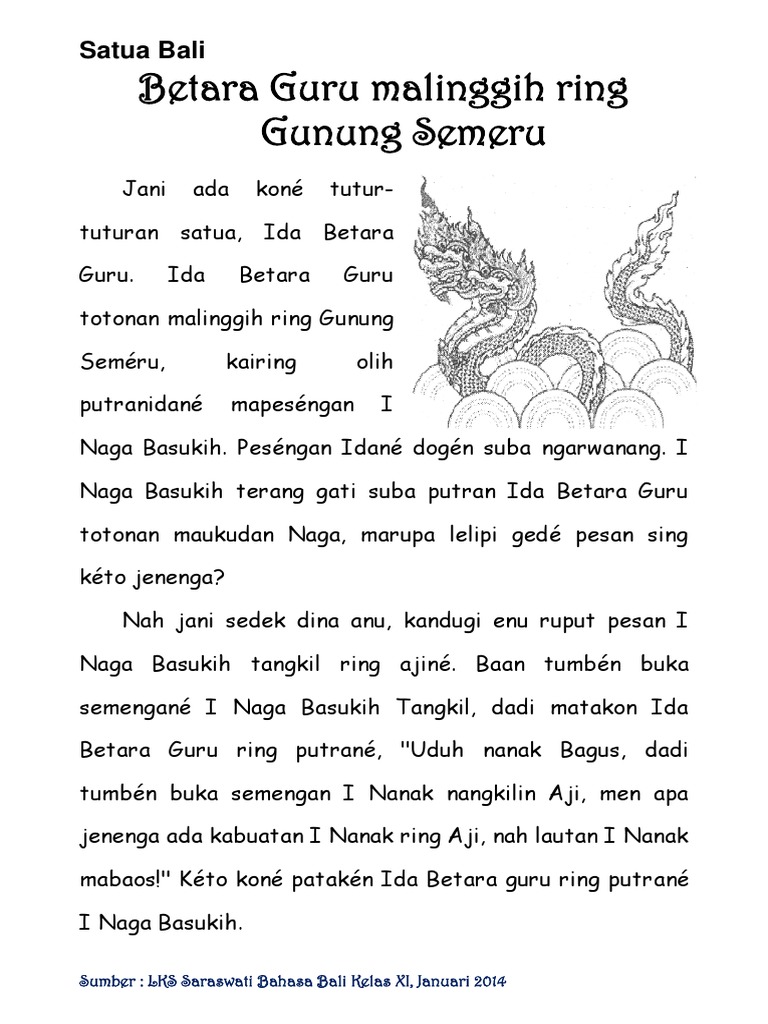 Satua Bali
Betara Guru malinggih ring
Gunung Semeru
Jani ada koné tutur-
tuturan satua, Ida Betara
Guru. Ida Betara Guru
totonan malinggih ring Gunung
Seméru, kairing olih
putranidané mapeséngan I
Naga Basukih. Peséngan Idané dogén suba ngarwanang. I
Naga Basukih terang gati suba putran Ida Betara Guru
totonan maukudan Naga, marupa lelipi gedé pesan sing
kéto jenenga?
Nah jani sedek dina anu, kandugi enu ruput pesan I
Naga Basukih tangkil ring ajiné. Baan tumbén buka
semengané I Naga Basukih Tangkil, dadi matakon Ida
Betara Guru ring putrané, "Uduh nanak Bagus, dadi
tumbén buka semengan I Nanak nangkilin Aji, men apa
jenenga ada kabuatan I Nanak ring Aji, nah lautan I Nanak
mabaos!" Kéto koné patakén Ida Betara guru ring putrané
I Naga Basukih.
Sumber : LKS Saraswati Bahasa Bali Kelas XI, Januari 2014